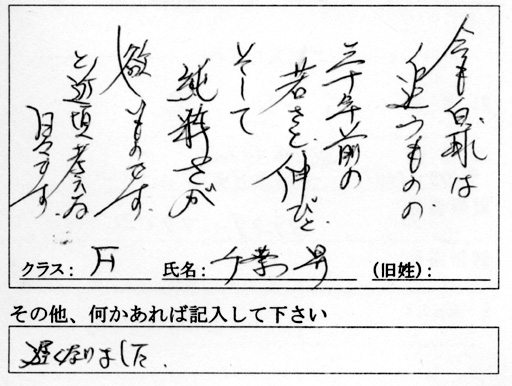 今も白球は
追うものの
三十年前の
若さと伸びと
そして
純粋さが
欲しいものです
と近頃考える
日々です。
クラス： H 氏名： 千葉 昇 （旧姓）：
その他、何かあれば記入して下さい
遅くなりました。